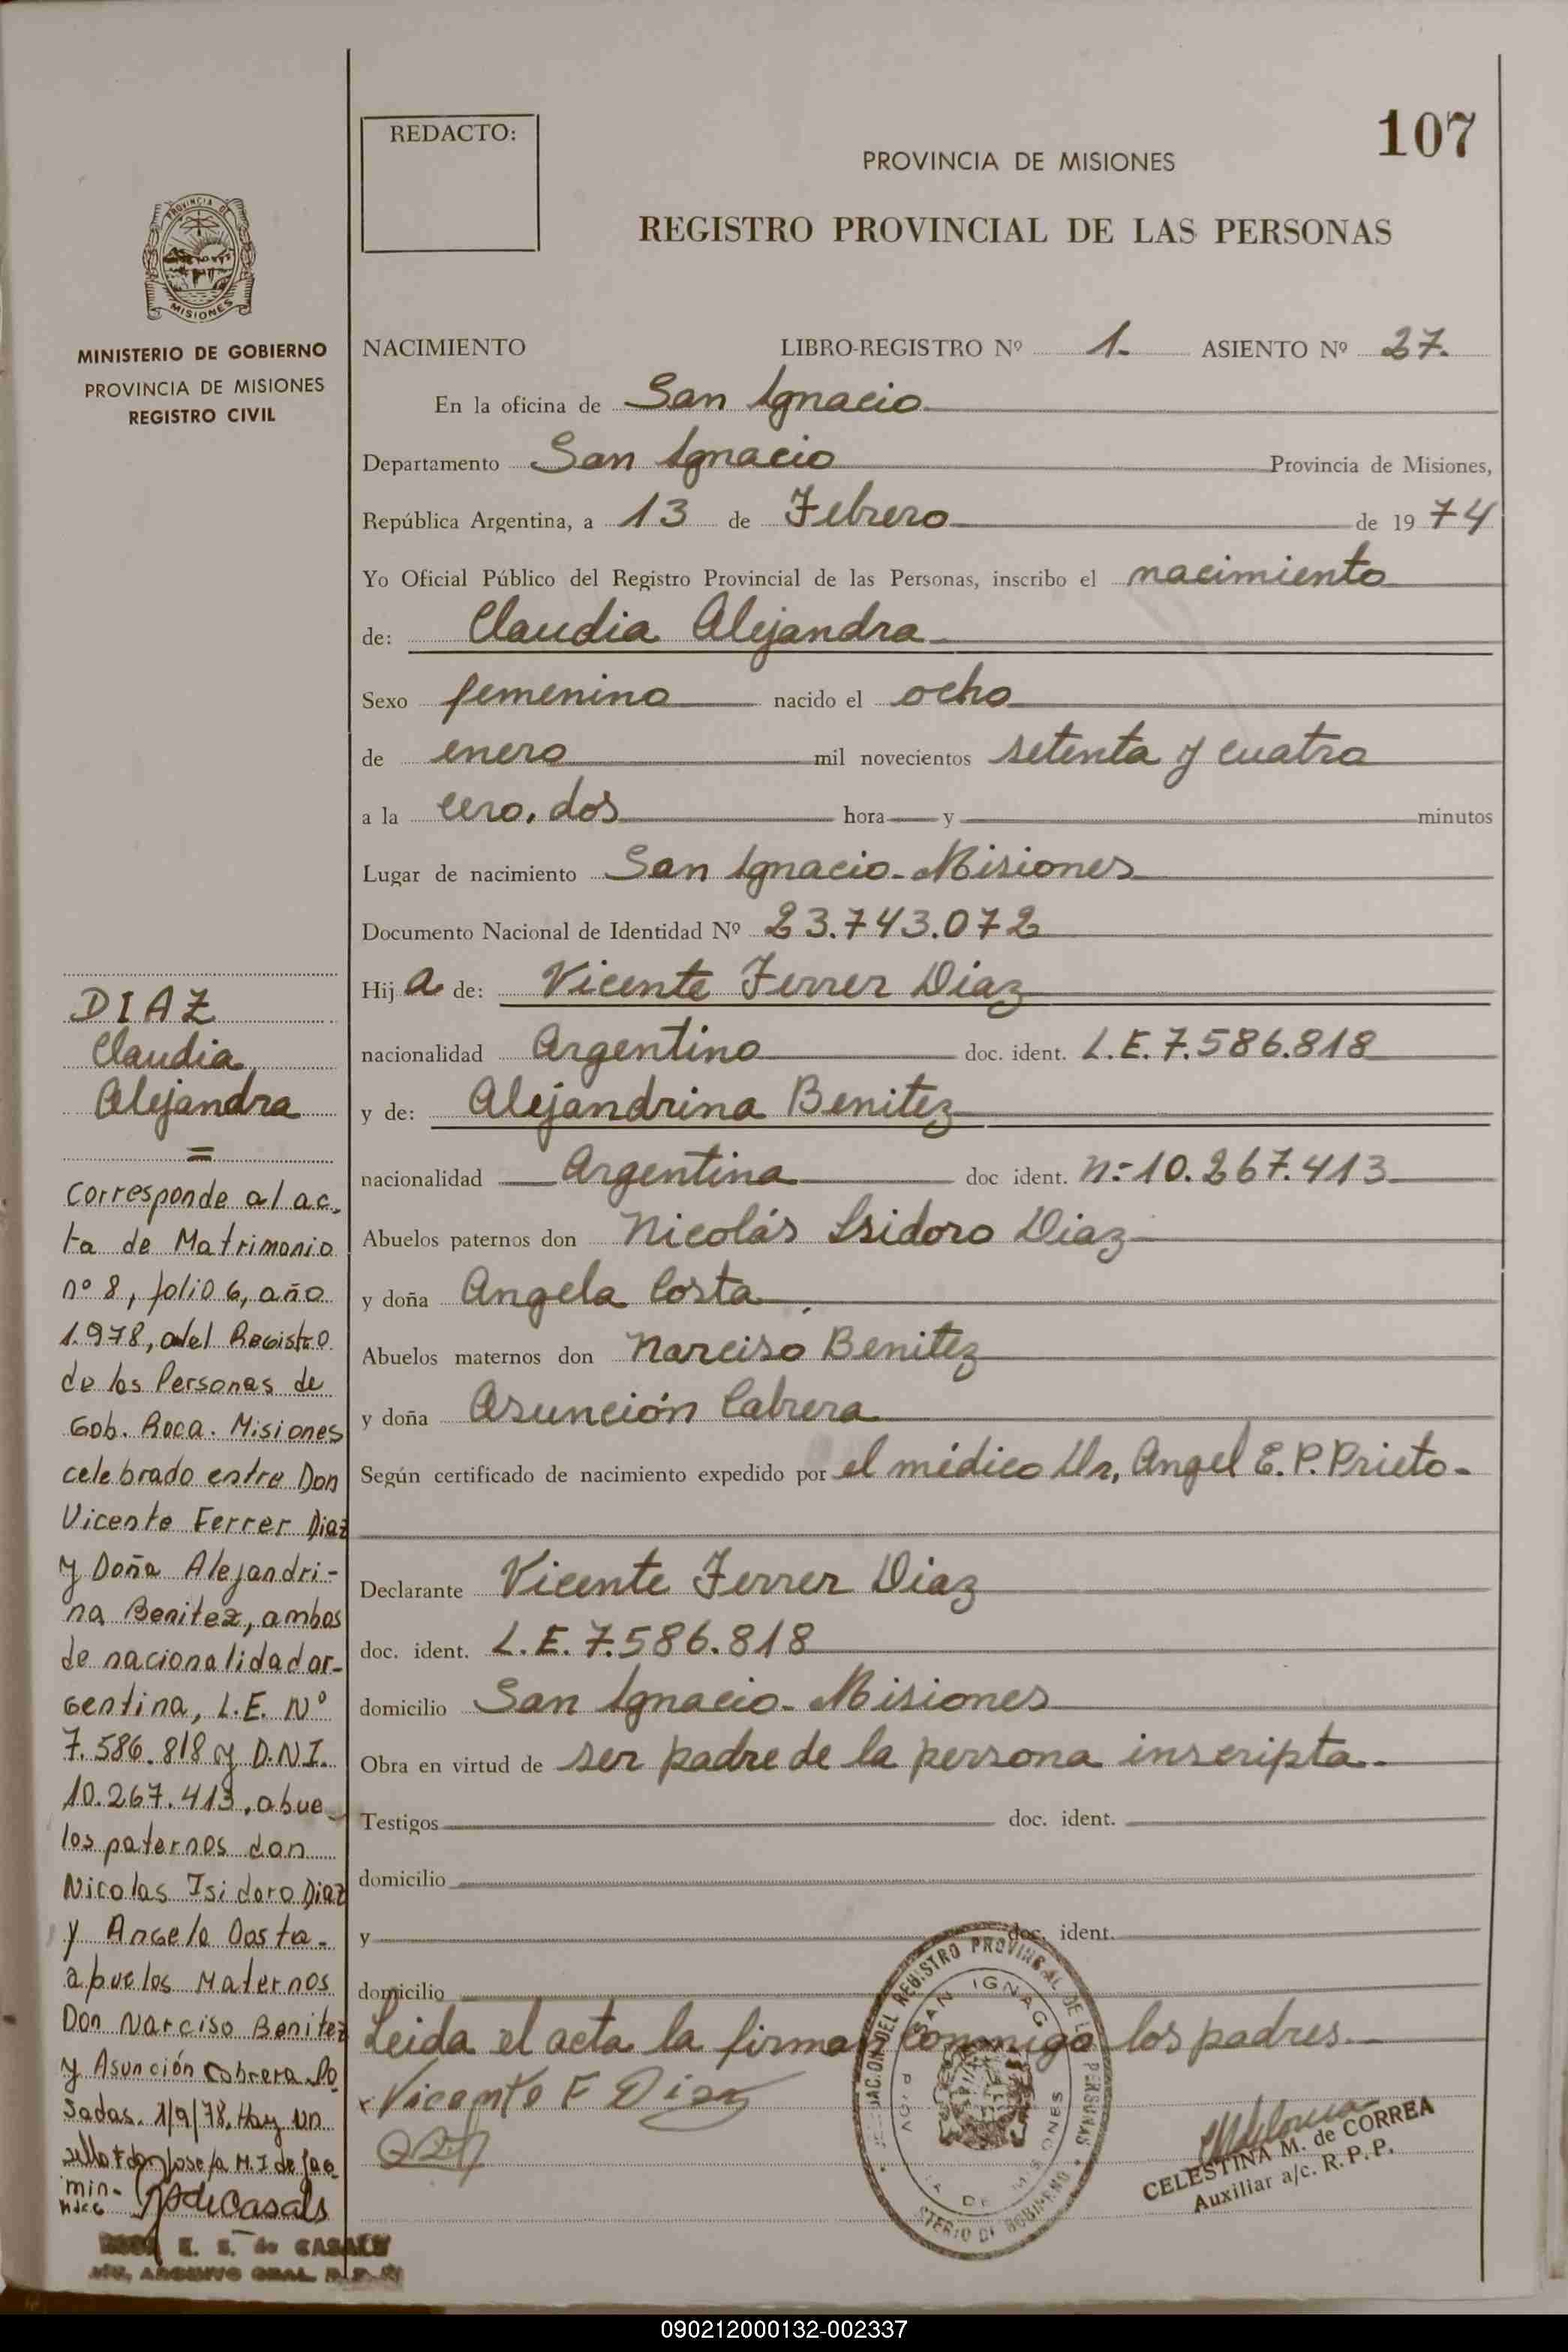 107
REDACTO:
PROVINCIA DE MISIONES
REGISTRO PROVINCIAL DE LAS PERSONAS
PROVINCIA DE
MISIONES
MINISTERIO DE GOBIERNO
PROVINCIA DE MISIONES
REGISTRO CIVIL
NACIMIENTO LIBRO-REGISTRO Nº 1. ASIENTO Nº 27.
En la oficina de San Ignacio
Departamento San Ignacio Provincia de Misiones,
República Argentina, a 13 de Febrero de 1974
Yo Oficial Público del Registro Provincial de las Personas, inscribo el nacimiento
de: Claudia Alejandra
Sexo femenino nacido el ocho
de enero mil novecientos setenta y cuatro
a la cero, dos hora y minutos
Lugar de nacimiento San Ignacio - Misiones
Documento Nacional de Identidad Nº 23.743.072
Hija de: Vicente Ferrer Diaz
nacionalidad Argentino doc. ident. L.E. 7.586.818
y de: Alejandrina Benitez
nacionalidad Argentina doc ident. n:- 10.267.413
Abuelos paternos don Nicolás Isidoro Diaz
y doña Angela Costa
Abuelos maternos don Narciso Benitez
y doña Asunción Cabrera
Según certificado de nacimiento expedido por el médico Dr, Angel E. P. Prieto-
Declarante Vicente Ferrer Diaz
doc. ident. L.E. 7.586.818
domicilio San Ignacio - Misiones
Obra en virtud de ser padre de la persona inscripta.
Testigos doc. ident.
domicilio
y doc. ident.
domicilio
Leida el acta la firman conmigo los padres.
Vicente F Diaz
CELESTINA M. de CORREA
Auxiliar a/c. R. P. P.
DIAZ
Claudia
Alejandra
=
Corresponde al ac-
ta de Matrimonio
nº 8, folio 6, año
1.978, del Registro
de las Personas de
Gob. Roca. Misiones
celebrado entre Don
Vicente Ferrer Diaz
y Doña Alejandri-
na Benitez, ambos
de nacionalidad ar-
gentina, L.E. Nº
7.586.818 y D.N.I.
10.267.413, abue-
los paternos don
Nicolas Isidoro Diaz
y Angela Costa-
abuelos Maternos
Don Narciso Benitez
y Asunción Cabrera. Po-
sadas. 1/9/78. Hay un
sello
E. S. de CASALS
ARCHIVO GRAL. R. P. P.
090212000132-002337